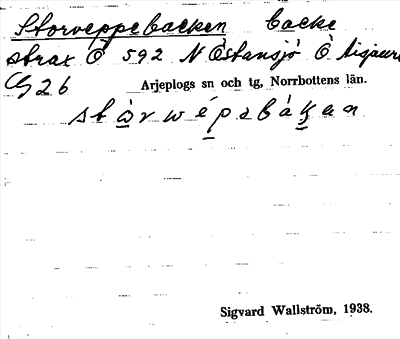 Storveppebacken backe
strax Ö 592 N Östansjö Ö
G 26 Arjeplogs sn och tg, Norrbottens län.
Sigvard Wallström, 1938.